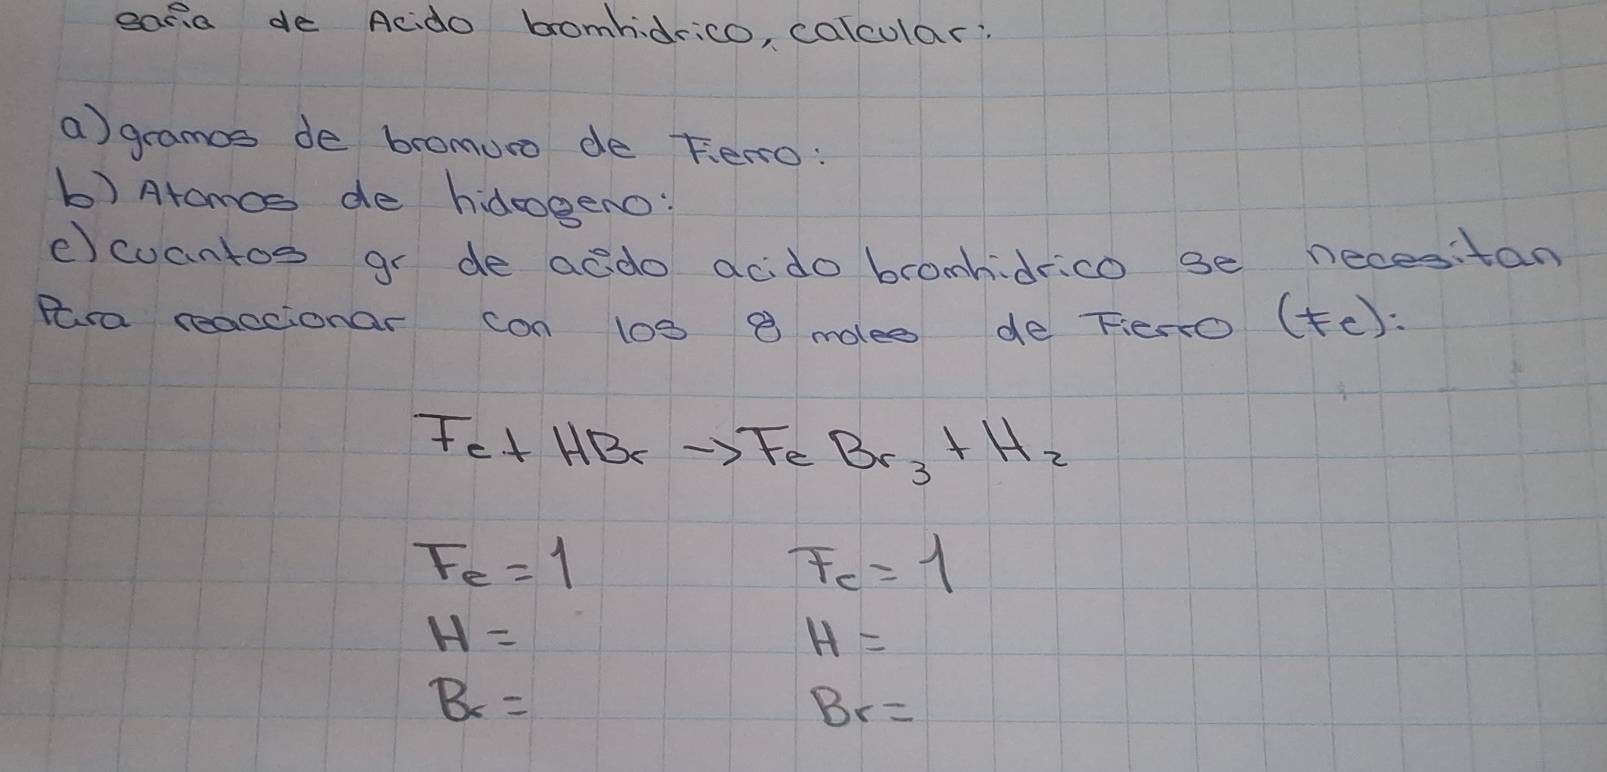 saria de Acido bromhidrico, calcular:
a) gramos de bromuro de Fierro:
b) Atomos de hidrogeno:
c) cuantos gr de acido acido bromhidrico se necesitan
Para reaccionar con los 8 moles de Fierro (Fe):
Fe + HBr -> FeBr₃ + H₂
Fe = 1 Fe = 1
H = H =
Br = Br =